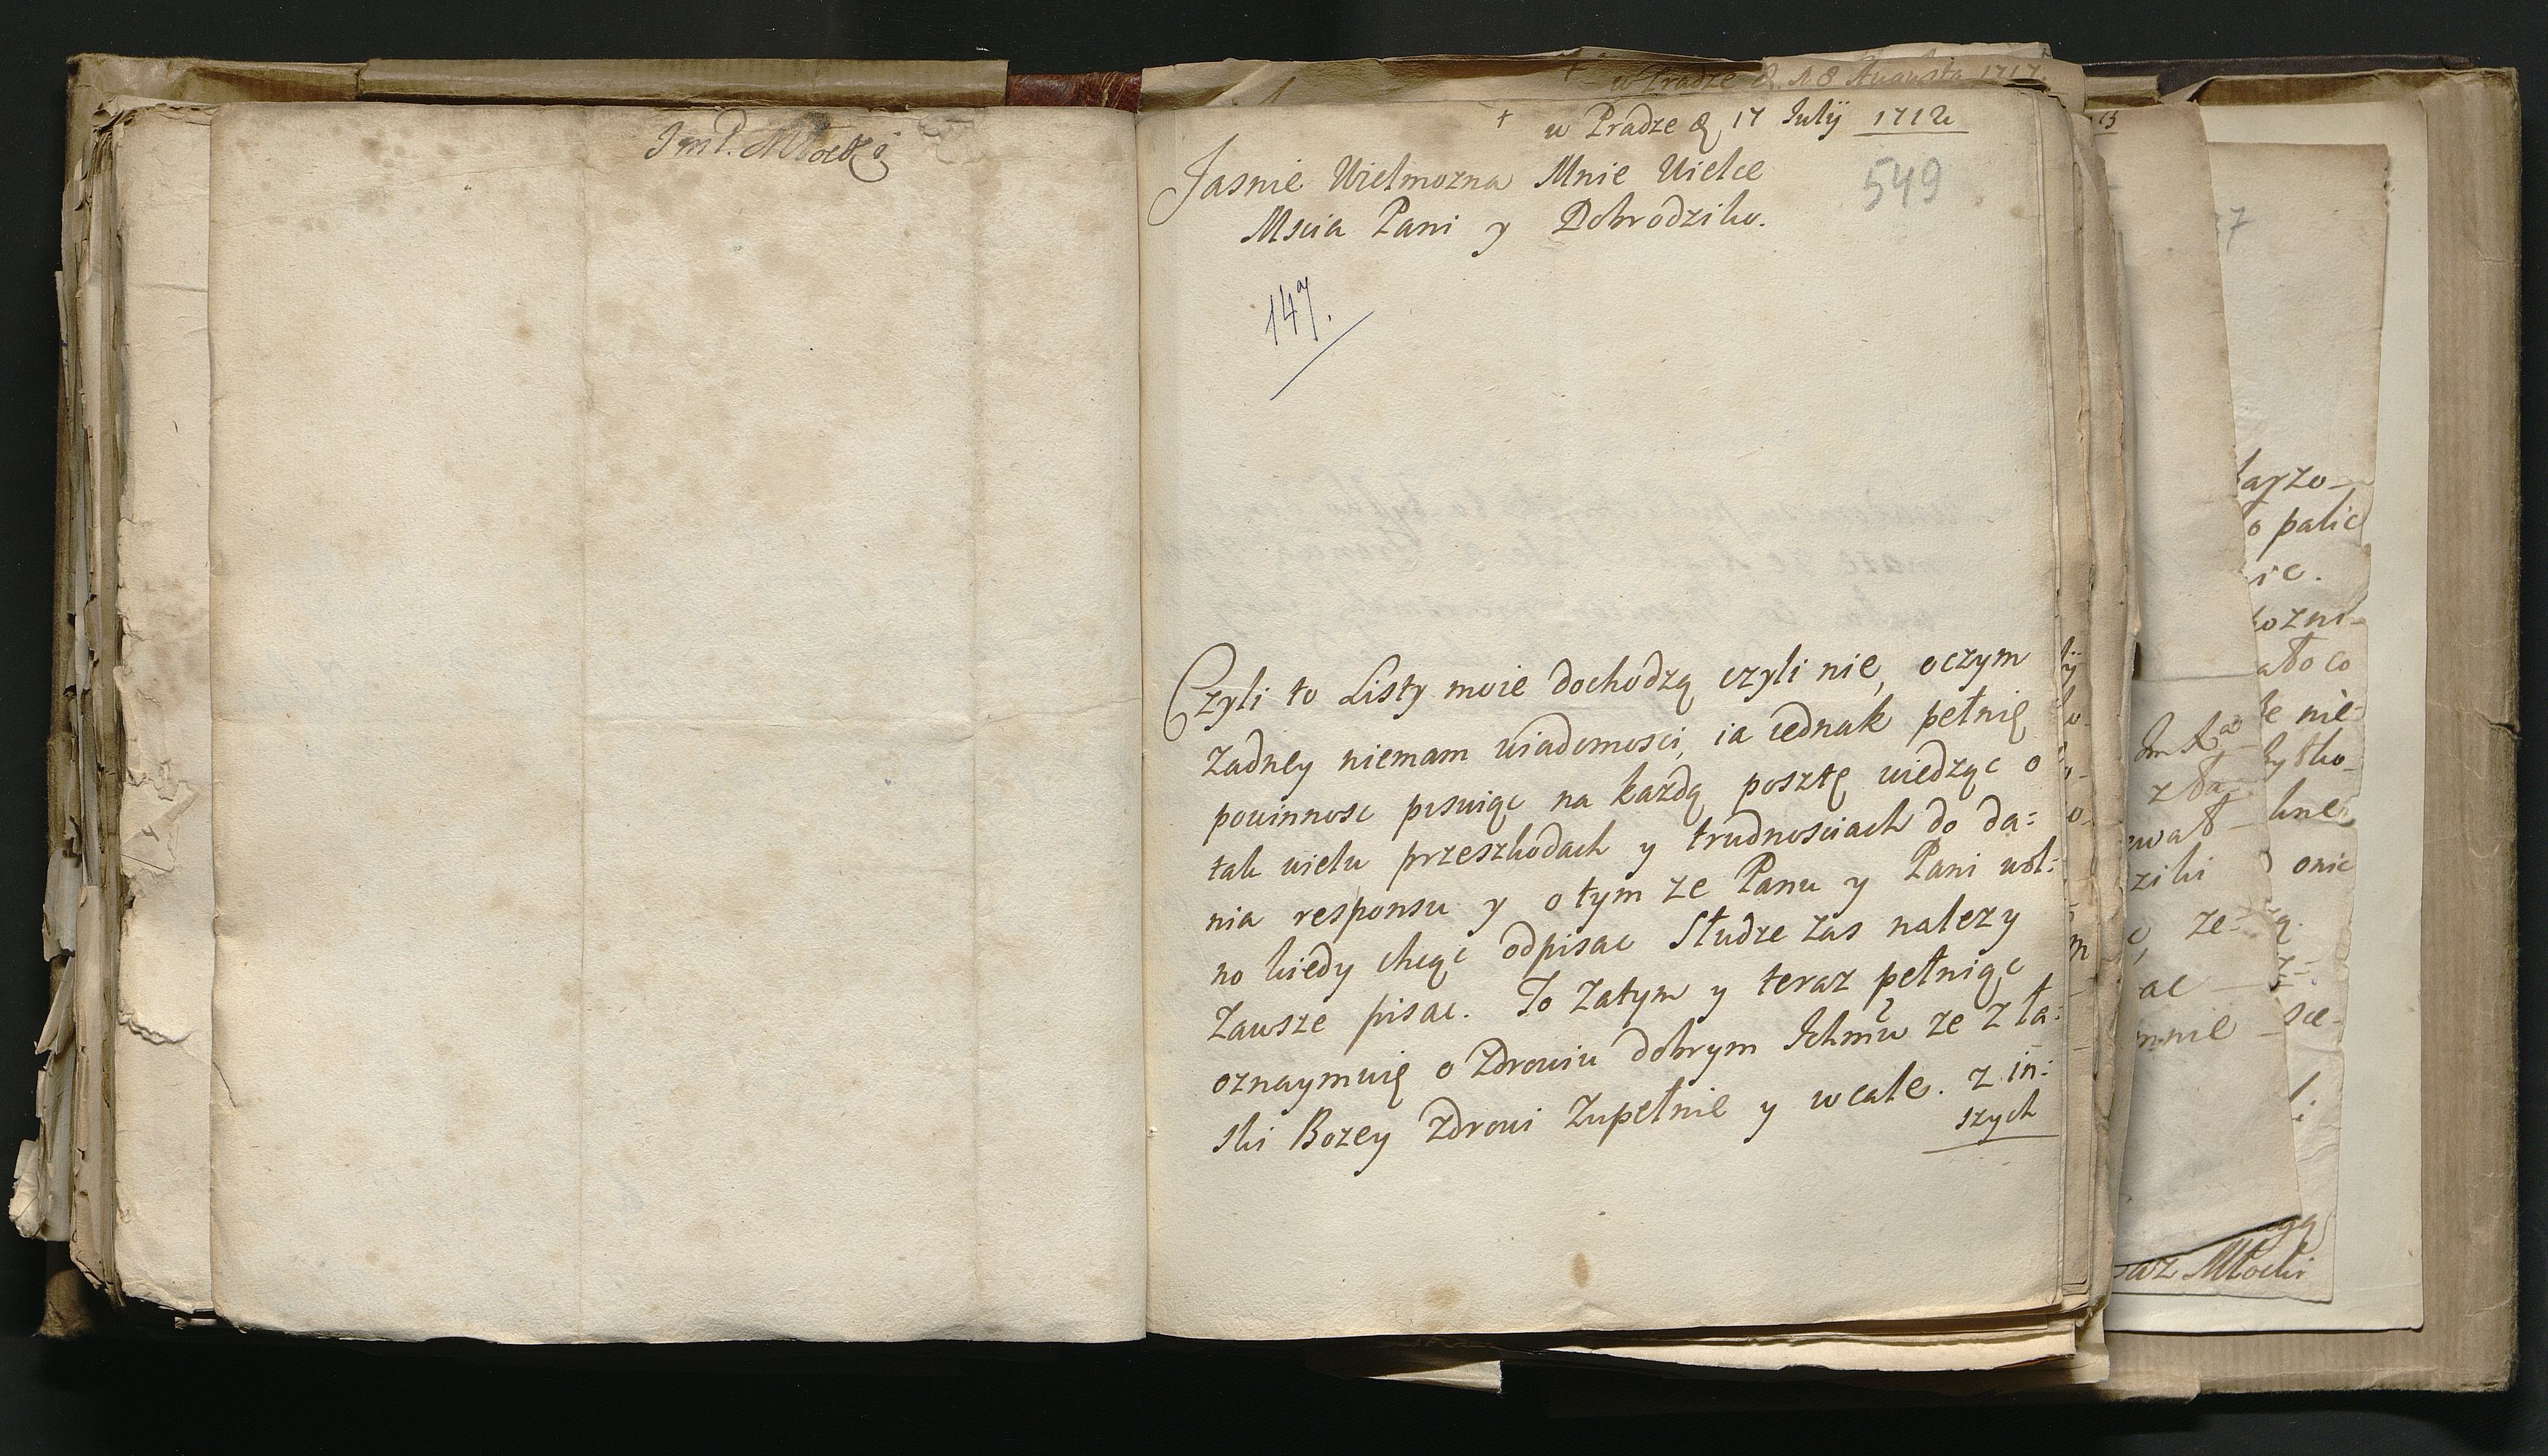 ImP. Młocki
w Pradze d. 18 Augusta 1717.
+ w Pradze d 17 Julij 1712
549
Jasnie Wielmozna Mnie Wielce
Mscia Pani y Dobrodziko.
147.
Czyli to Listy moie dochodzą czyli nie, oczym
Zadney niemam wiadomosci, ia iednak pełnię
powinnosc pisuiąc na kazdą posztę wiedząc o
tak wielu przeszkodach y trudnosciach do da:
nia responsu y otym ze Panu y Pani wol:
no kiedy chcąc odpisac Słudze zas nalezy
Zawsze pisac. To Zatym y teraz pełniąc
oznaymuię o Zdrowiu dobrym Ichmw ze z ła:
ski Bozey Zdrowi Zupełnie y wcale. Z in:
szych
o palic
ato co
onic
mnie
Młocki